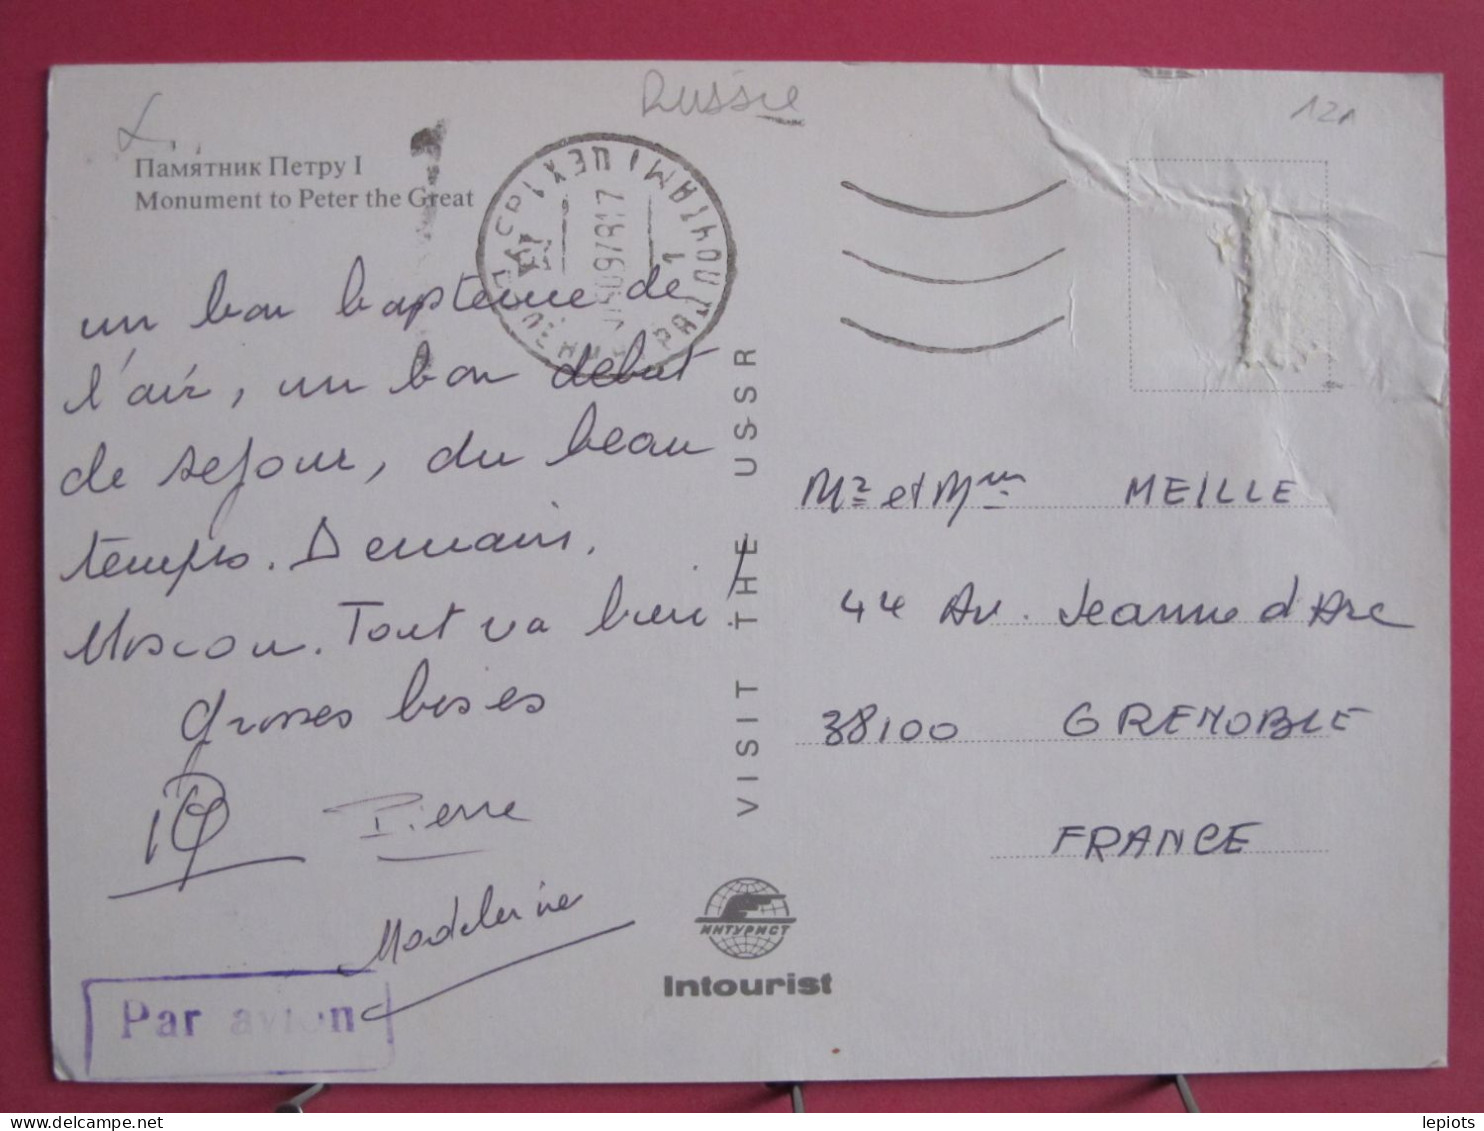 Russie
121
Памятник Петру I
Monument to Peter the Great
un bon bapteme de
l'air, un bon debut
de sejour, du beau
temps. Demain,
Moscou. Tout va bien
grosses bises
Pierre
Madeleine
Par avion
VISIT THE USSR
ИНТУРИСТ
Intourist
Mr et Mme MEILLE
44 Av. Jeanne d'Arc
38100 GRENOBLE
FRANCE
lepiots
www.delcampe.net